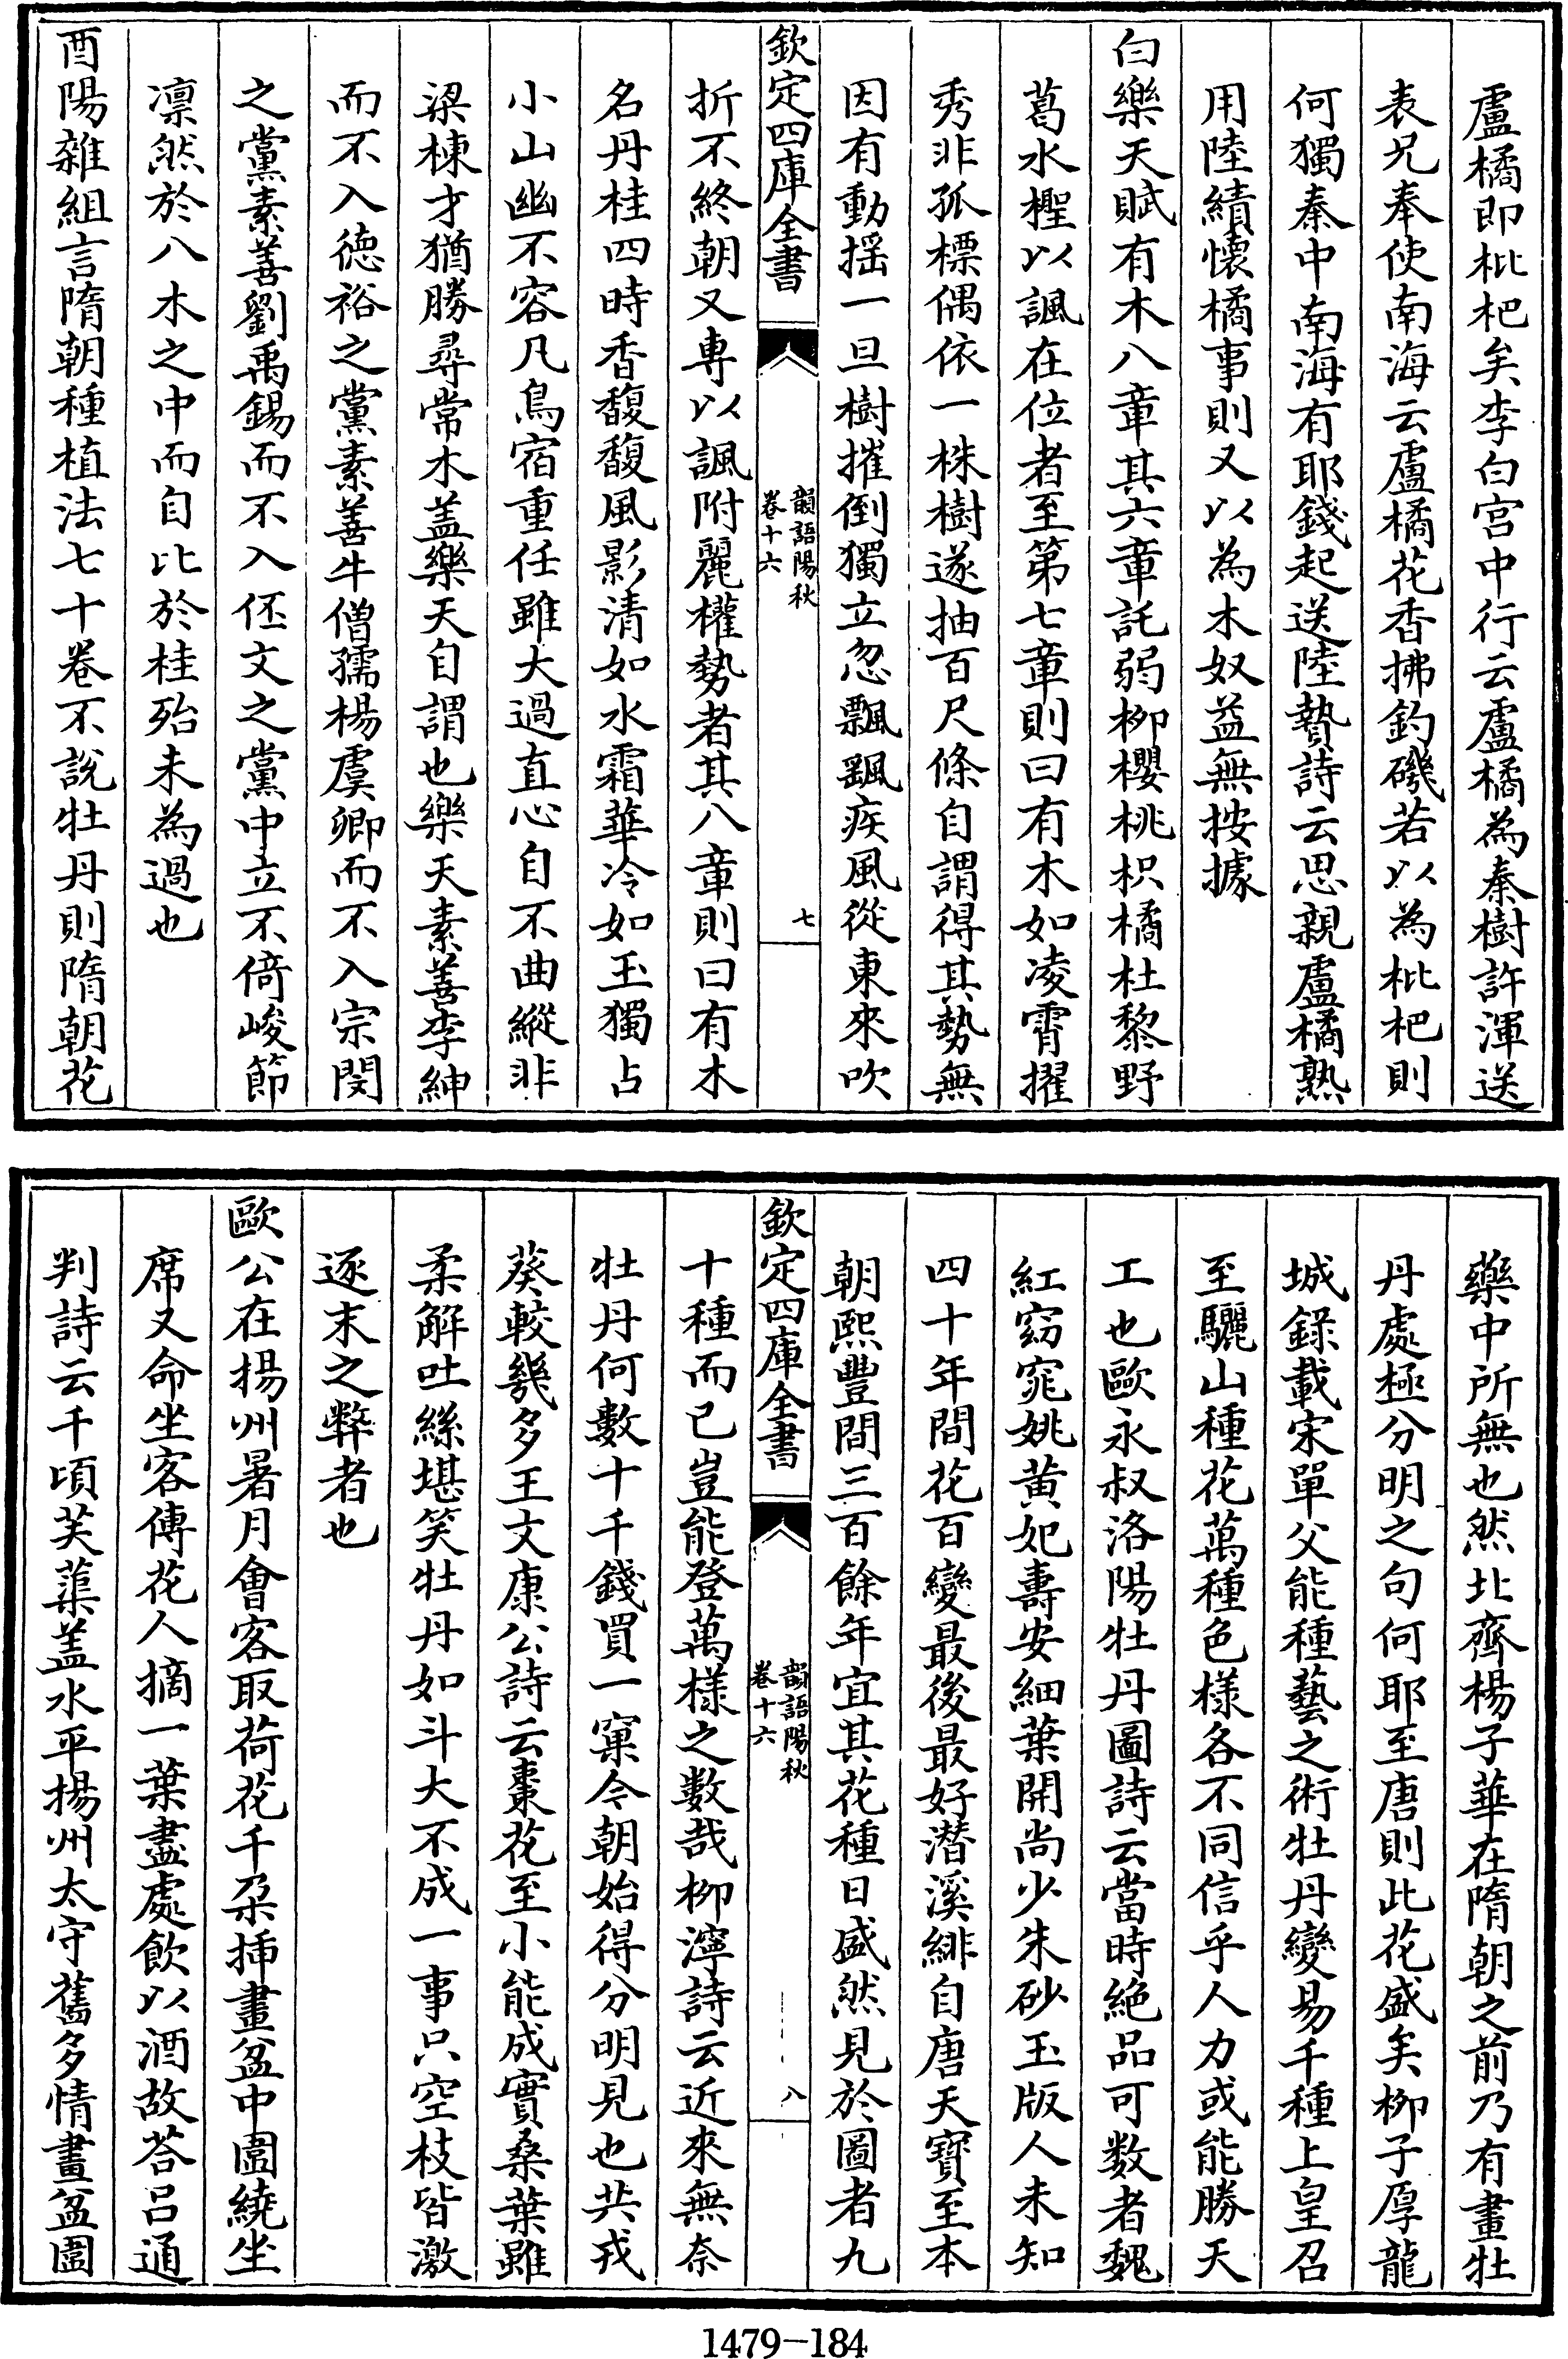 盧橘即枇杷矣李白宫中行云盧橘為秦樹許渾送
表兄奉使南海云盧橘花香拂釣磯若以為枇杷則
何獨秦中南海有耶錢起送陸贄詩云思親盧橘熟
用陸績懷橘事則又以為木奴益無按據
白樂天賦有木八章其六章託弱柳櫻桃枳橘杜黎野
葛水檉以諷在位者至第七章則曰有木如凌霄擢
秀非孤標偶依一株樹遂抽百尺條自謂得其勢無
因有動揺一旦樹摧倒獨立忽飄颻疾風從東來吹
欽定四庫全書
韻語陽秋
卷十六
七
折不終朝又専以諷附麗權勢者其八章則曰有木
名丹桂四時香馥馥風影清如水霜華冷如玉獨占
小山幽不容凡鳥宿重任雖大過直心自不曲縱非
梁棟才猶勝尋常木盖樂天自謂也樂天素善李紳
而不入徳裕之黨素善牛僧孺楊虞卿而不入宗閔
之黨素善劉禹錫而不入伾文之黨中立不倚峻節
凛然於八木之中而自比於桂殆未為過也
酉陽雜組言隋朝種植法七十卷不說牡丹則隋朝花
藥中所無也然北齊楊子華在隋朝之前乃有畫牡
丹處極分明之句何耶至唐則此花盛矣柳子厚龍
城録載宋單父能種藝之術牡丹變易千種上皇召
至驪山種花萬種色様各不同信乎人力或能勝天
工也歐永叔洛陽牡丹圖詩云當時絶品可数者魏
紅窈窕姚黄妃壽安細葉開尚少朱砂玉版人未知
四十年間花百變最後最好潜溪緋自唐天寳至本
朝熙豐間三百餘年宜其花種日盛然見於圖者九
欽定四庫全書
韻語陽秋
卷十六
八
十種而已豈能登萬様之數哉柳渾詩云近來無奈
牡丹何數十千錢買一窠今朝始得分明見也共戎
葵較幾多王文康公詩云棗花至小能成實桑葉雖
柔解吐絲堪笑牡丹如斗大不成一事只空枝皆激
逐末之弊者也
歐公在揚州暑月會客取荷花千朶揷畫盆中圍繞坐
席又命坐客傳花人摘一葉盡處飲以酒故荅吕通
判詩云千頃芙蕖盖水平揚州太守舊多情畫盆圍
1479-184